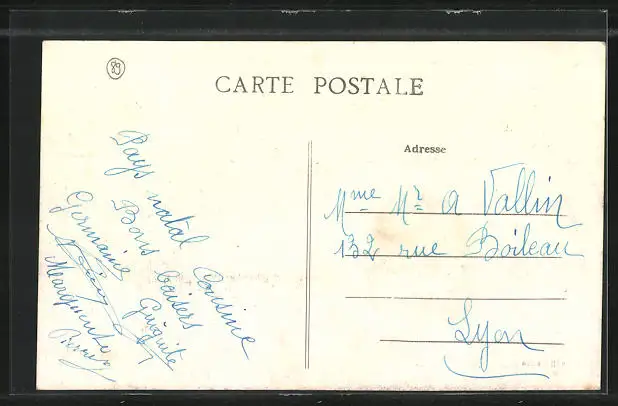 89
CARTE POSTALE
Adresse
Mme Mr A Vallin
132 rue Boileau
Lyon
Pays natal Cousine
Bons baisers
Guiguite
Germaine
Marguerite